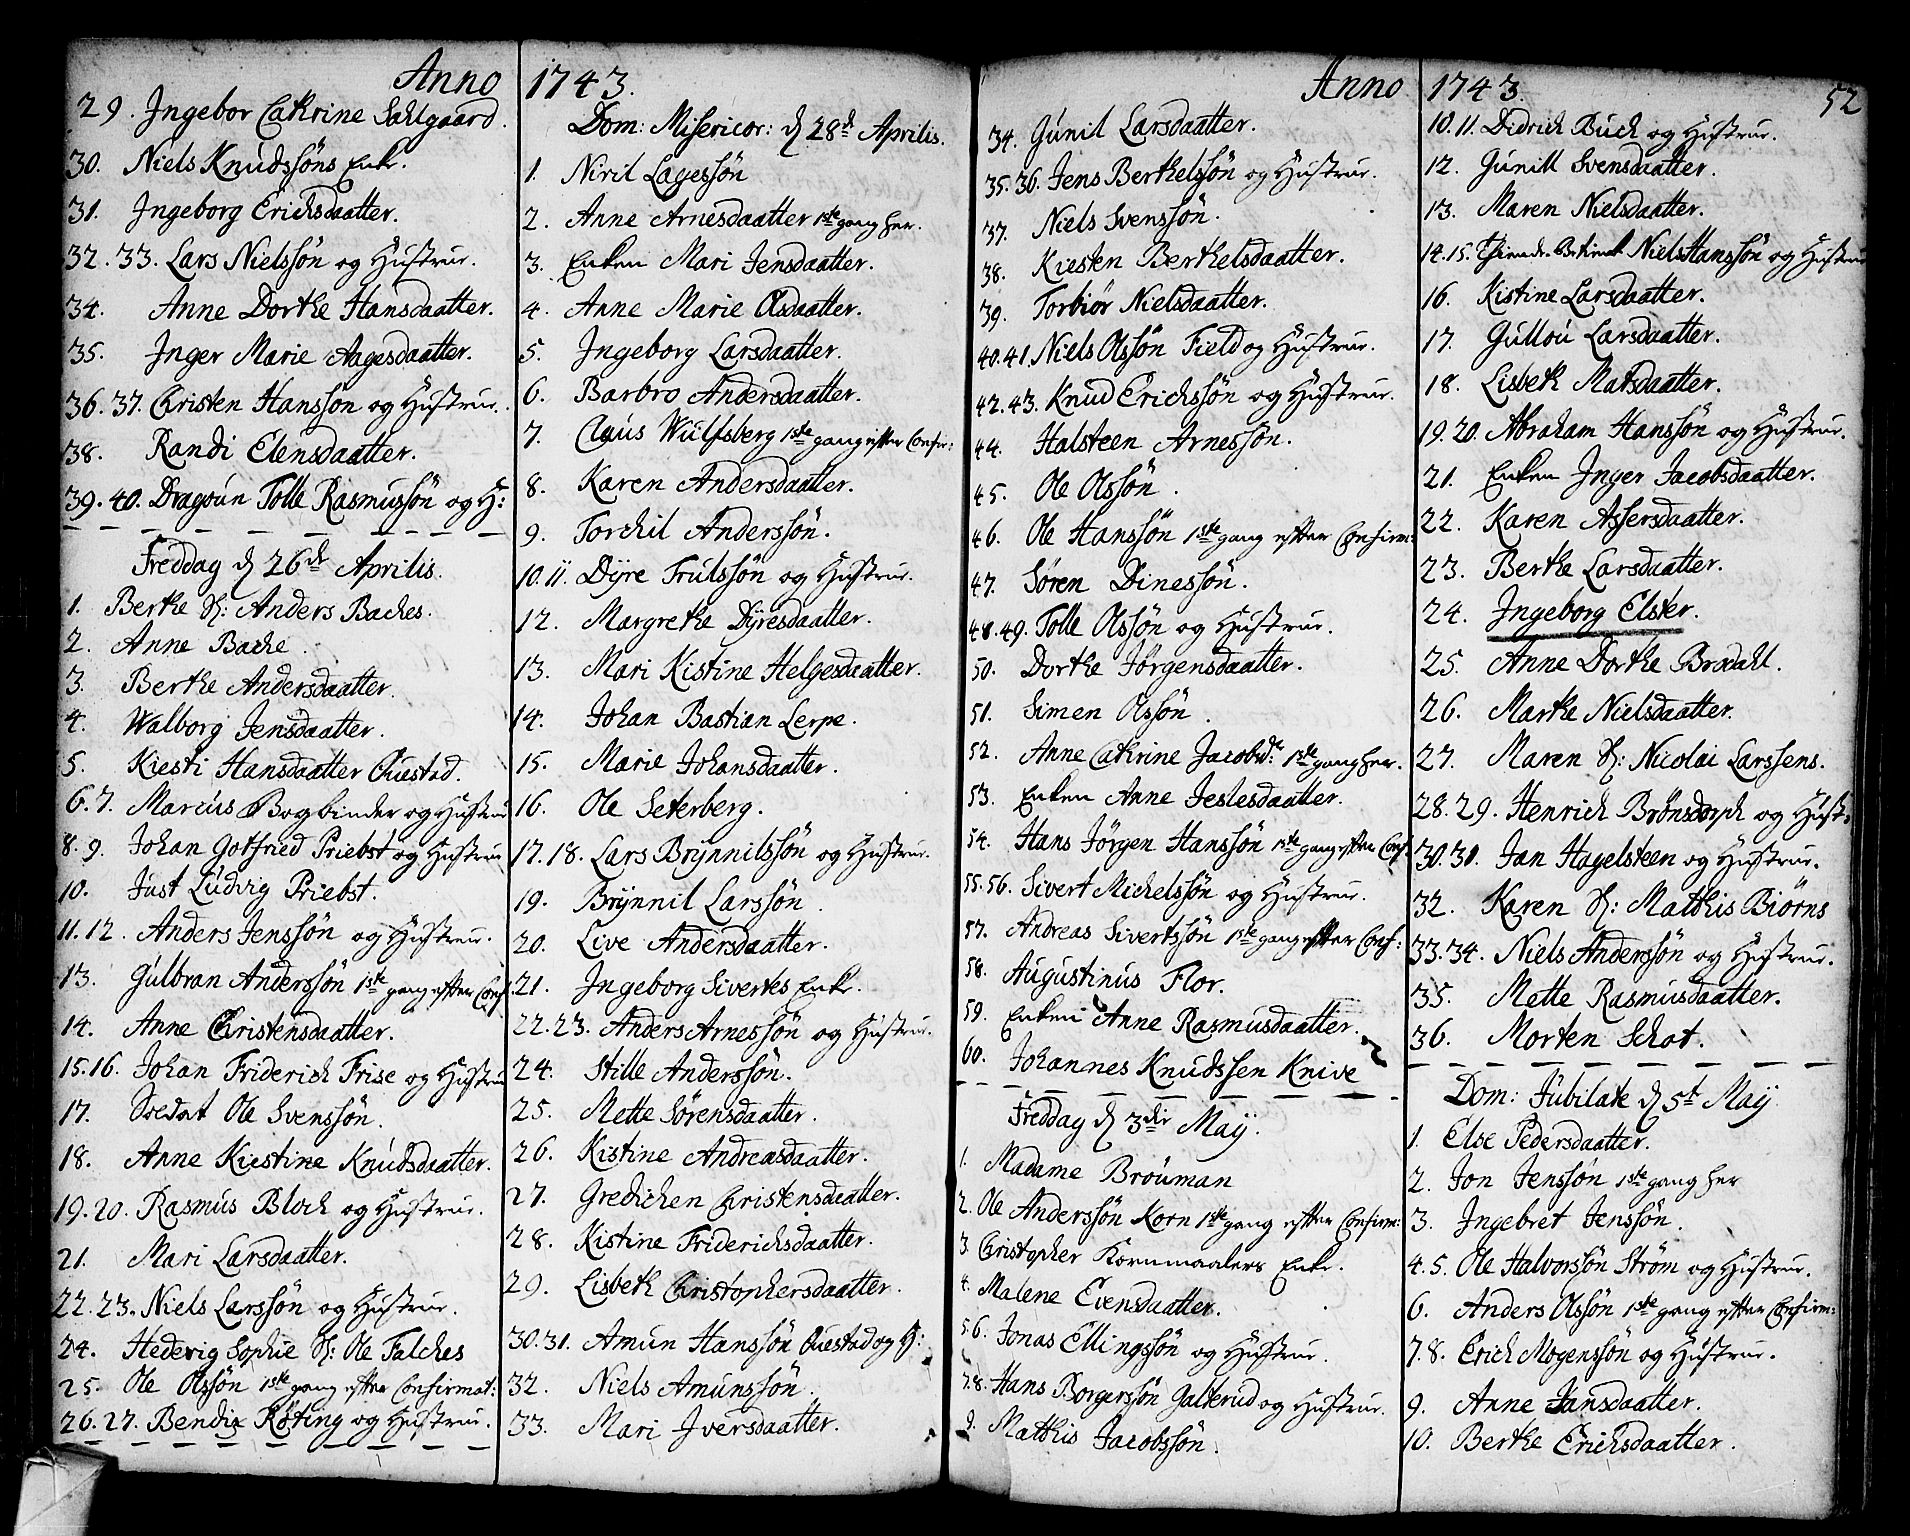 Anno
29. Ingebor Catrine Sahlgaard.
30. Niels Knudssöns Enke.
31. Ingeborg Erichsdaatter.
32. 33. Lars Nielssön og Hustrue.
34. Anne Dorthe Hansdaatter.
35. Inger Marie Aagesdaatter.
36. 37. Christen Hansson og Hustrue.
38. Randi Elensdaatter.
39. 40. Dragoun Tolle Rasmussön og H:
Freddag d 26de Aprilis.
1. Berthe H: Anders Baches.
2. Anne Bache.
3. Berthe Andersdaatter.
4. Walborg Jensdaatter.
5. Kiesti Hansdaatter Questad.
6. 7. Marcus Bogbinder og Hustrue
8. 9. Johan Gotfried Priebst og Hustrue
10. Just Ludvig Priebst.
11. 12. Anders Jenssön og Hustrue.
13. Gulbran Anderssön 1ste gang efter Conf.
14. Anne Christensdaatter.
15. 16. Johan Friderich Frise og Hustrue
17. Soldat Ole Svenssön.
18. Anne Kiestine Knudsdaatter.
19. 20. Rasmus Bloch og Hustrue.
21. Mari Larsdaatter.
22. 23. Niels Larssön og Hustrue.
24. Hedevig Sophie H: Ole Falches
25. Ole Olssön 1ste gang efter Confirmat:
26. 27. Bendix Röting og Hustrue.
1743.
Dom: Misericor: d 28de Aprilis.
1. Niril Lagessön
2. Anne Arnesdaatter 1ste gang her.
3. Enken Mari Jensdaatter.
4. Anne Marie Olsdaatter.
5. Ingeborg Larsdaatter.
6. Barbro Andersdaatter.
7. Claus Wulfsberg 1ste gang efter Confir:
8. Karen Andersdaatter.
9. Torchil Anderssön.
10. 11. Dyre Trulssön og Hustrue.
12. Margrethe Dyresdaatter.
13. Mari Kistine Helgesdaatter.
14. Johan Bastian Lerpe.
15. Marie Johansdaatter.
16. Ole Seterberg.
17. 18. Lars Brynnilssön og Hustrue.
19. Brynnil Larssön.
20. Live Andersdaatter.
21. Ingeborg Siverts Enke.
22. 23. Anders Arnessön og Hustrue.
24. Stille Anderssön.
25. Mette Sörensdaatter.
26. Kistine Andreasdaatter.
27. Gredichen Christensdaatter.
28. Kistine Friderichsdaatter.
29. Lisbeth Christophersdaatter.
30. 31. Amun Hanssön Questad og H:
32. Niels Amunssön.
33. Mari Iversdaatter.
Anno
34. Gunil Larsdaatter.
35. 36. Jens Berthelssön og Hustrue.
37. Niels Svenssön.
38. Kiesten Berthelsdaatter.
39. Torbiör Nielsdaatter.
40. 41. Niels Olssön Field og Hustrue.
42. 43. Knud Erichssön og Hustrue.
44. Halsteen Arnessön.
45. Ole Olssön.
46. Ole Hanssön 1ste gang efter Confirm:
47. Sören Dinessön.
48. 49. Tolle Olssön og Hustrue.
50. Dorthe Jörgensdaatter.
51. Simen Olssön.
52. Anne Cathrine Jacobsdr 1ste gang her.
53. Enken Anne Jeslesdaatter.
54. Hans Jörgen Hanssön 1ste gang efter Conf.
55. 56. Sivert Michelssön og Hustrue.
57. Andreas Sivertssön 1ste gang efter Conf:
58. Augustinus Flor.
59. Enken Anne Rasmusdaatter.
60. Johannes Knudssen Knive
Freddag d 3die Maij.
1. Madame Brouman
2. Ole Anderssön Korn 1ste gang efter Confirm:
3. Christopher Kornmaalers Enke.
4. Malene Evensdaatter.
5. 6. Jonas Ellingssön og Hustrue.
7. 8. Hans Borgerssön Galterud og Hustrue.
9. Matthis Jacobssön.
1743
52
10. 11. Didrich Buch og Hustrue.
12. Gunill Svensdaatter.
13. Maren Nielsdaatter.
14. 15. Niels Hanssön og Hustrue
16. Kistine Larsdaatter.
17. Gullou Larsdaatter.
18. Lisbeth Matsdaatter.
19. 20. Abraham Hanssön og Hustrue.
21. Enken Inger Jacobsdaatter.
22. Karen Assersdaatter.
23. Berthe Larsdaatter.
24. Ingeborg Elster.
25. Anne Dorthe Bradahl.
26. Marthe Nielsdaatter.
27. Maren H: Nicolai Larssens.
28. 29. Henrich Brönsdorph og Hust:
30. 31. Jan Hagelsteen og Hustrue.
32. Karen H: Matthis Biörns
33. 34. Niels Anderssön og Hustrue.
35. Mette Rasmusdaatter.
36. Morten Schot.
Dom: Jubilate d 5t Maij
1. Else Pedersdaatter.
2. Jon Jenssön 1ste gang her
3. Ingebret Jenssön.
4. 5. Ole Halvorssön Ström og Hustrue.
6. Anders Olssön 1ste gang efter Confirm:
7. 8. Erich Mogenssön og Hustrue.
9. Anne Jansdaatter.
10. Berthe Erichsdaatter.